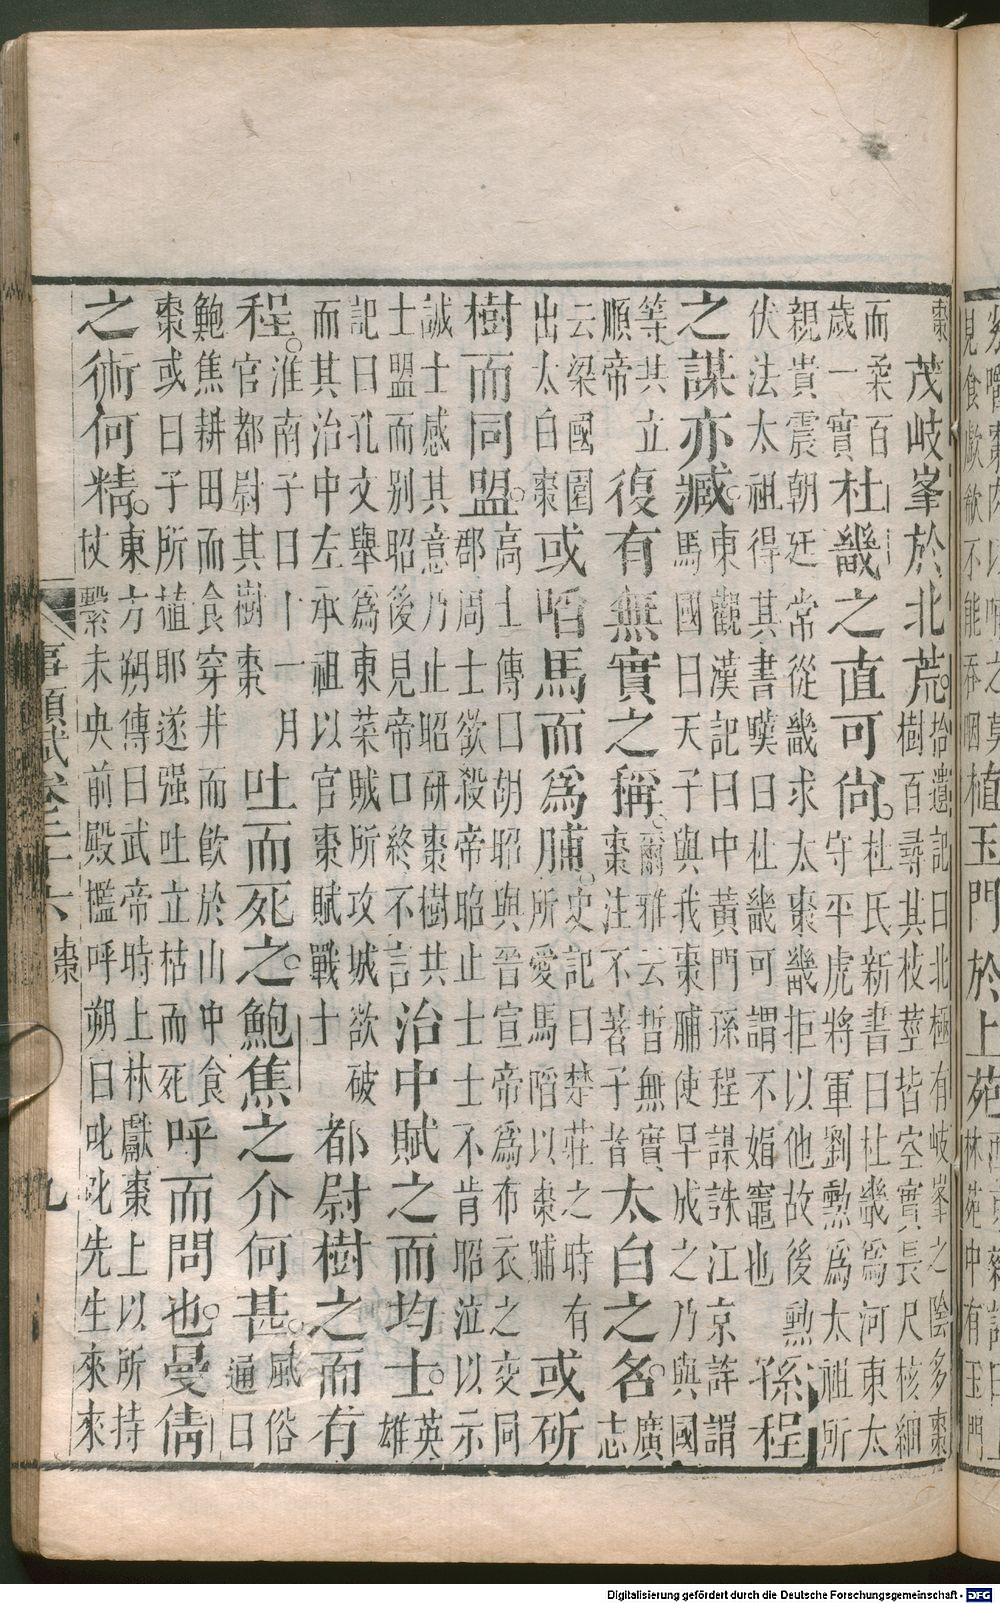 見食歠欲不能吞咽植玉門於上苑
林苑中有玉門
棗茂岐峯於北荒。拾遺記曰北極有岐峯之陰多棗
樹百尋其枝莖皆空實長尺核細
而柔百
歲一實杜畿之直可尚。杜氏新書曰杜畿爲河東太
守平虎將軍劉勲爲太祖所
親貴震朝廷常從畿求太棗畿拒以他故後勲
伏法太祖得其書嘆曰杜畿可謂不媚竈也孫程
之謀亦臧。東觀漢記曰中黃門孫程謀誅江京詐謂
馬國曰天子與我棗脯使早成之乃與國
等共立
順帝復有無實之稱。爾雅云晳無實
棗注不著子者太白之名。廣
志
云梁國園
出太白棗或㗖馬而爲脯。史記曰楚莊之時有
所愛馬㗖以棗脯或斫
樹而同盟。高士傳曰胡昭與晉宣帝爲布衣之交同
郡周士欲殺帝昭止士士不肯昭泣以示
誠士感其意乃止昭研棗樹共
士盟而别昭後見帝口終不言治中賦之而均士。英
雄
記曰孔文舉爲東萊賊所攻城欲破
而其治中左承祖以官棗賦戰士都尉樹之而有
程。淮南子曰十一月
官都尉其樹棗吐而死之。鮑焦之介何甚。風俗
通曰
鮑焦耕田而食穿井而飲於山中食
棗或曰子所植耶遂强吐立枯而死呼而問也。曼倩
之術何精。東方朔傳曰武帝時上林獻棗上以所持
杖繫未央前殿檻呼朔曰叱叱先生來來
事類賦卷二十六 棗 九
Digitalisierung gefördert durch die Deutsche Forschungsgemeinschaft - DFG